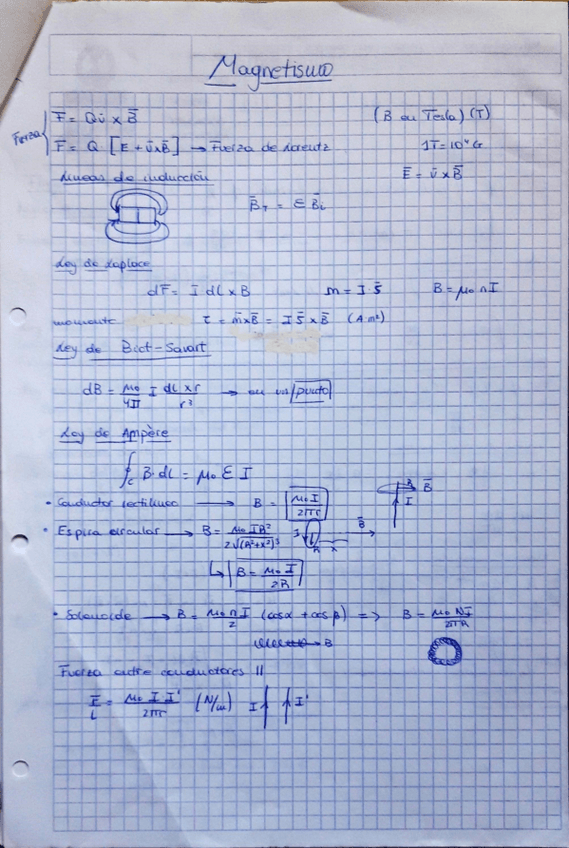 Magnetismo
Fuerza
F̄ = Qv̄ x B̄ (B en Tesla) (T)
F̄ = Q [E + v̄xB̄] → Fuerza de Lorentz 1T = 10⁴ G
Ē = v̄ x B̄
Líneas de inducción
B̄T = Σ B̄i
Ley de Laplace
dF̄ = I dl x B m = I·S̄ B = μ₀ n I
momento τ = m̄xB̄ = I S̄ x B̄ (A m²)
Ley de Biot-Savart
dB = μ₀/4π I dl x r/r³ → en un punto
Ley de Ampère
∮c B·dl = μ₀ Σ I
• Conductor rectilíneo → B = μ₀I/2πr R B̄ I
• Espira circular → B = μ₀ I R²/2√(R²+x²)³ I R x B̄
↳ B = μ₀ I/2R
• Solenoide → B = μ₀ n I/2 (cosα + cosβ) => B = μ₀ N I/2πR
→ B
Fuerza entre conductores ||
F̄/L = μ₀ I I'/2πr (N/m) I I'